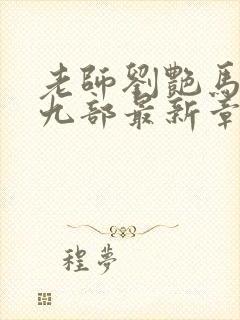 老師劉艷馬
九部最新章
程夢